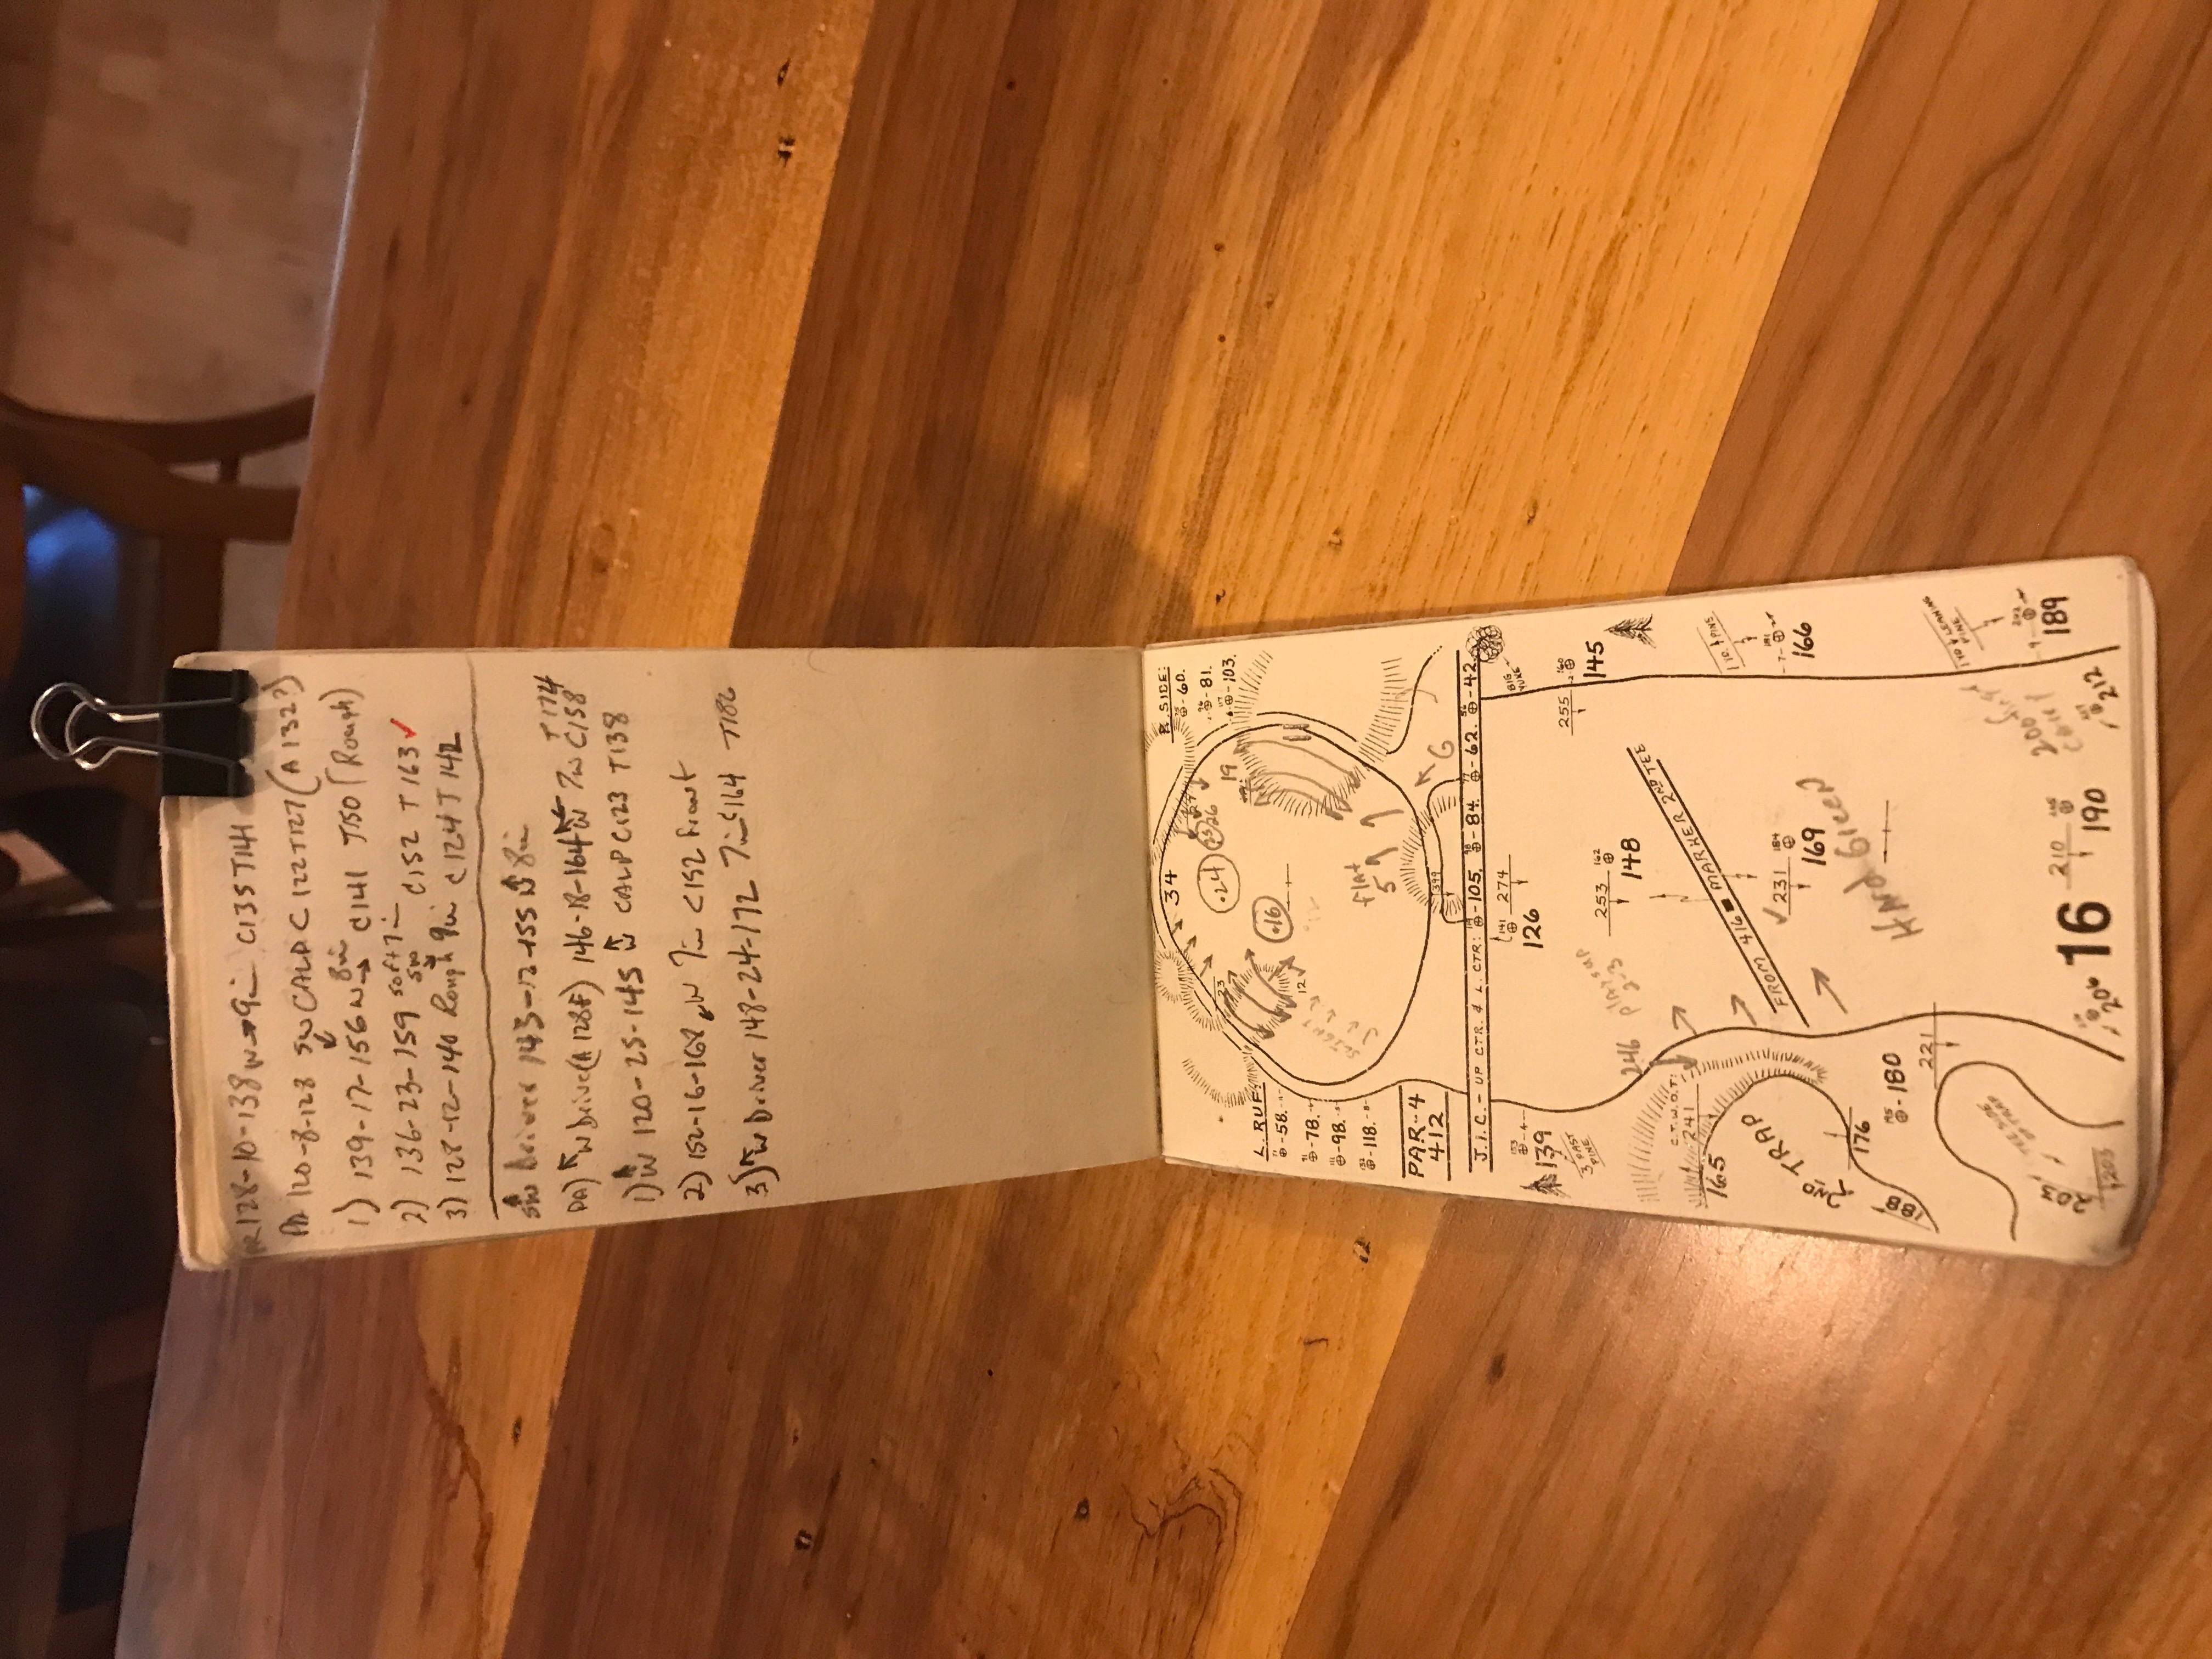 PR 128-10-138 W→ 9i C135 T141
PA 120-8-128 SW CALP C122 T127 (A 132?)
1) 139-17-156 W→ 8i C141 T150 (Rough)
2) 136-23-159 soft 7i C152 T163 ✓
3) 128-12-140 Rough 9i C124 T142
SW Driver 143-12-155 W 8i
PA) W Drive (A 128F) 146-18-164 W 7i C158 T174
1) W 120-25-145 W CALP C123 T138
2) 152-16-168 W 7i C152 Front
3) W Driver 148-24-172 7i C164 T182
R.SIDE:
⊕-60.
⊕-81.
⊕-103.
34
.24
26
19
.16
23
12
flat
5
SLIGHT
G
L. RUF:
⊕-58.
⊕-78.
⊕-98.
⊕-118.
PAR-4
412
J.I.C.- UP CTR. & L. CTR: ⊕-105. ⊕-84. ⊕-62. ⊕-42.
399
BIG
139
3 PAST
PINE
141 ⊕ 274
126
253 162 ⊕
148
255 160 ⊕
145
246 plays up
2-3
FROM 416 ■ MARKER 2ND TEE
C.T.W.O.T.:
241
165
231 184 ⊕
169
1ST PINE
181 ⊕
166
2ND TRAP
176
188
195 ⊕-180
221
Hard Green
LEANING
PINE
202 ⊕
189
16
210 ⊕
190
206
212
203